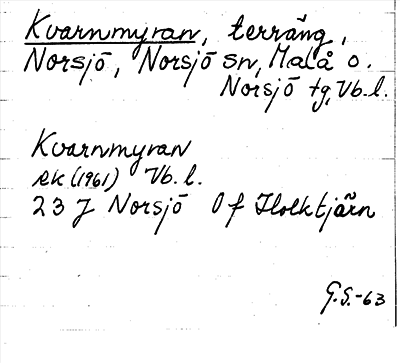 Kvarnmyran, terräng,
Norsjö, Norsjö sn, Malå o.
Norsjö tg, Vb. l.
Kvarnmyran
ek (1961) Vb. l.
23 J Norsjö 0 f Holktjärn
G.S.-63